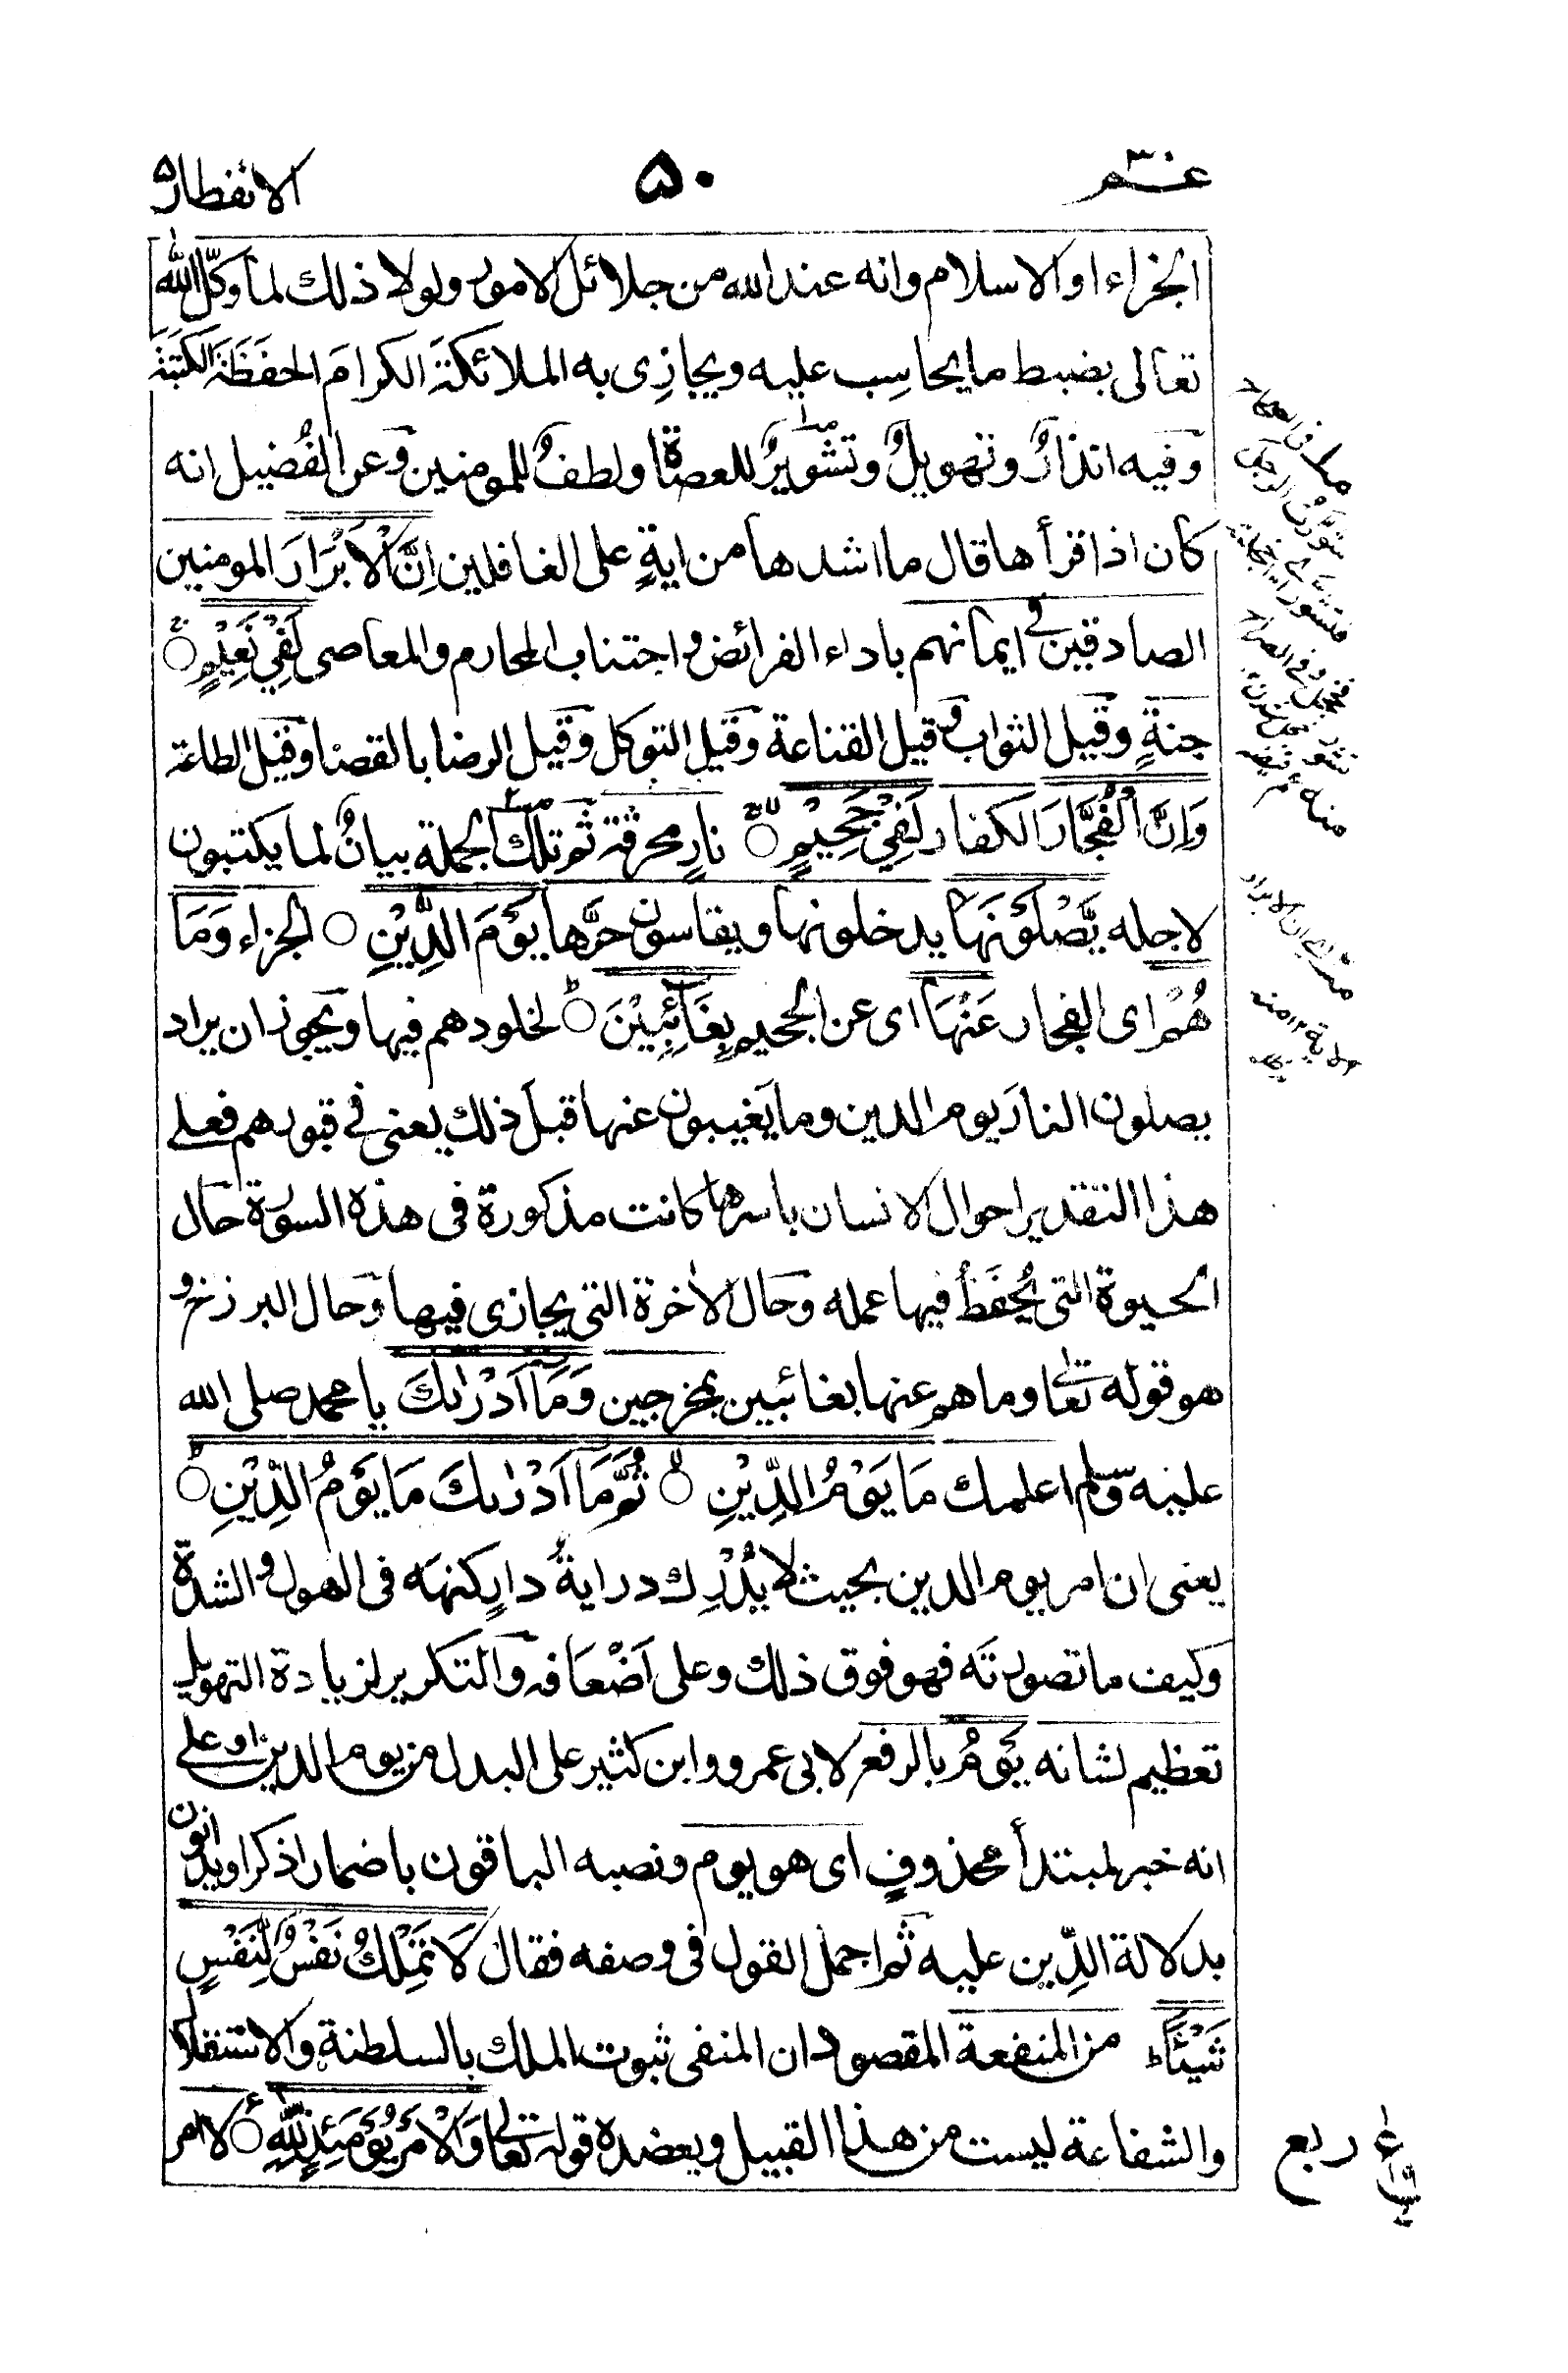 عم ٣٠
۵۰
الانفطار
الجزاء او الاسلام وانه عند الله من جلائل الامور ولولا ذلك لما وكّل الله
تعالى بضبط ما يحاسِب عليه ويجازِى به الملائكةَ الكرامَ الحفَظَةَ الكتَبَةَ
وفيه انذارٌ وتهويلٌ وتشويرٌ للعصاة ولطفٌ للمومنين وعن الفُضيل انه
كان اذا قرأها قال ما اشدها من ايةٍ على الغافلين اِنَّ الْاَبْرَارَ المومنين
الصادقين فى ايمانهم باداء الفرائض واجتناب المحارم والمعاصى لَفِيْ نَعِيْمٍ
جنةٍ وقيل الثواب وقيل القناعة وقيل التوكل وقيل الرضا بالقضا وقيل الطاعة
وَاِنَّ الْفُجَّارَ الكفار لَفِيْ جَحِيْمٍ نارٍ محرقة ثم تلك الجملة بيانٌ لما يكتبون
لاجله يَّصْلَوْنَهَا يدخلونها ويقاسون حرَّها يَوْمَ الدِّيْنِ الجزاء وَمَا
هُمْ اى الفجار عَنْهَا اى عن الجحيم بِغَآئِبِيْنَ لخلودهم فيها ويجوز ان يراد
يصلون النار يوم الدين وما يغيبون عنها قبل ذلك يعنى فى قبورهم فعلى
هذا التقدير احوال الانسان باسرها كانت مذكورة فى هذه السورة حال
الحيوة التى يُحْفَظُ فيها عمله وحال الاخرة التى يجازى فيها وحال البرزخ و
هو قوله تعا وما هم عنها بغائبين بمخرجين وَمَآ اَدْرٰىكَ يا محمد صلى الله
عليه وسلم اعلمك مَا يَوْمُ الدِّيْنِ ثُمَّ مَآ اَدْرٰىكَ مَا يَوْمُ الدِّيْنِ
يعنى ان امر يوم الدين بحيث لا يُدْرِك درايةُ دارٍ كنهَه فى الهول والشدة
وكيف ما تصورتَه فهو فوق ذلك وعلى اَضْعَافه والتكرير لزيادة التهويل
تعظيم لشانه يَوْمُ بالرفع لابى عمرو وابن كثير على البدل من يوم الدين او على
انه خبر لمبتدأ محذوفٍ اى هو يوم ونصبه الباقون باضمار اذكر او يدانون
بدلالة الدِّين عليه ثم اجمل القول فى وصفه فقال لَا تَمْلِكُ نَفْسٌ لِّنَفْسٍ
شَيْـًٔا من المنفعة المقصود ان المنفى ثبوت الملك بالسلطنة والاستقلال
والشفاعة ليست من هذا القبيل ويعضده قوله تعالى وَالْاَمْرُ يَوْمَئِذٍ لِّلّٰهِ لا امر
ربع